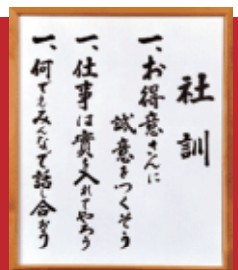 社訓
一、お得意さんに
誠意をつくそう
一、仕事は責を入れてやろう
一、何でもみんなで話し合おう